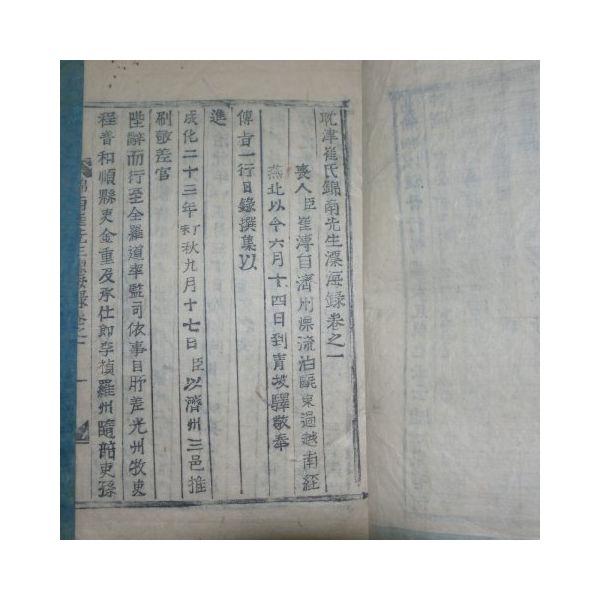 耽津崔氏錦南先生漂海錄卷之一
喪人臣崔溥自濟州漂流泊甌東過越南經
燕北以今六月十四日到青坡驛敬奉
傳旨一行日錄撰集以
進
成化二十三年丁未秋九月十七日臣以濟州三邑推
刷敬差官
陛辭而行至全羅道率監司依事目所差光州牧吏
程普和順縣吏金重及承仕郎李楨羅州隨陪吏孫